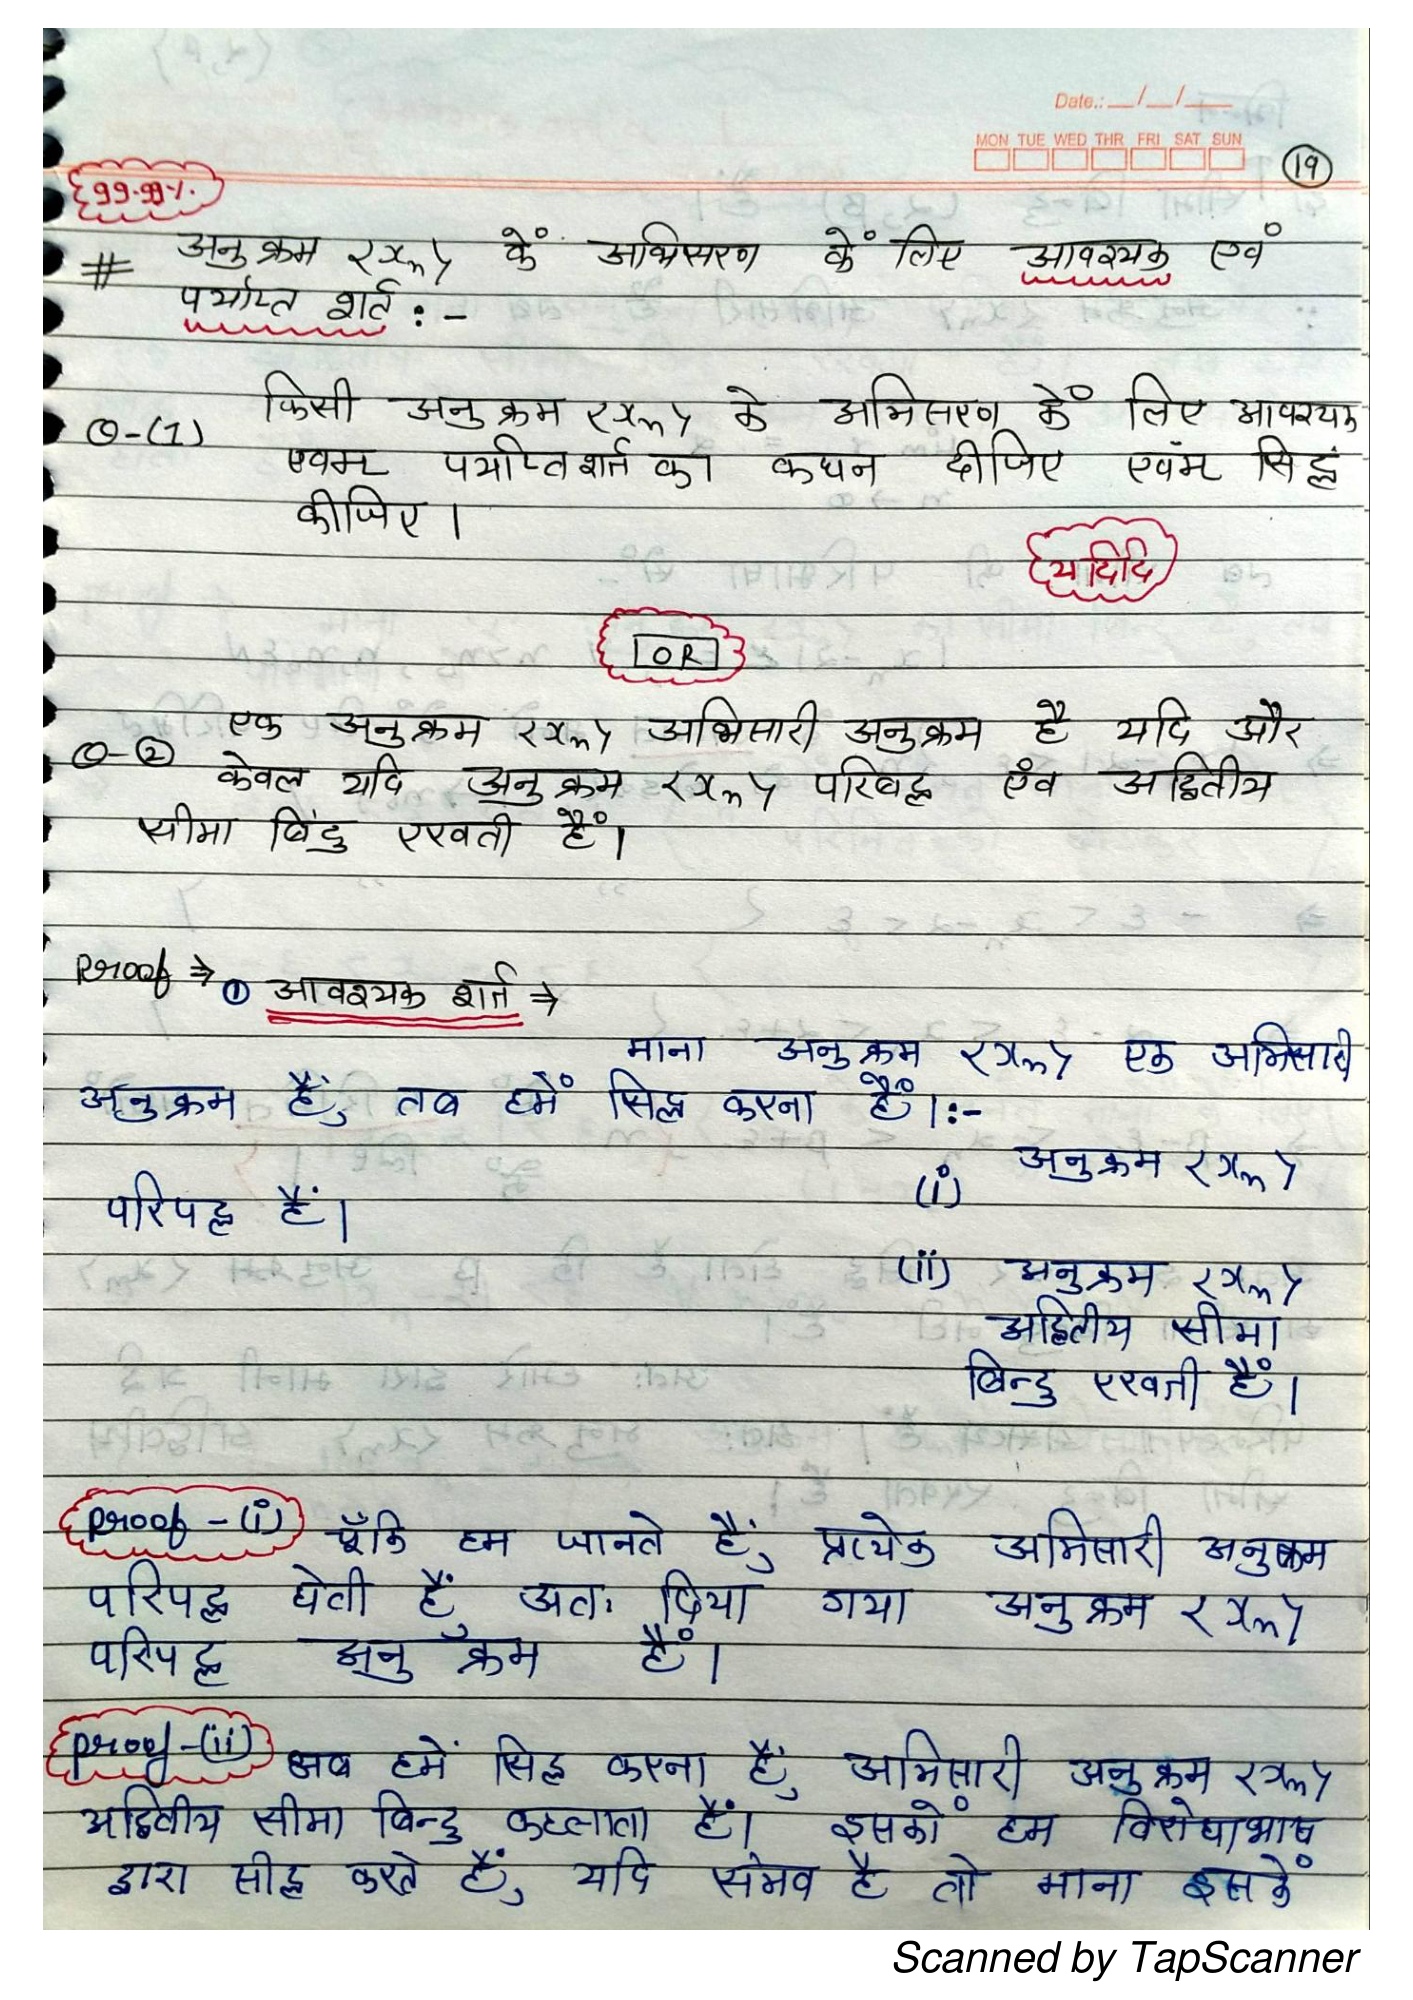 Date.: __/__/__
MON TUE WED THR FRI SAT SUN
19
99.99%.
# अनुक्रम <xₙ> कें अभिसरण कें लिए आवश्यक एवं
पर्याप्त शर्त :-
Q-(1) किसी अनुक्रम <xₙ> के अभिसरण कें लिए आवश्यक
एवम पर्याप्त शर्त का कथन दीजिए एवंम सिद्ध
कीजिए।
यदिदि
OR
Q-② एक अनुक्रम <xₙ> अभिसारी अनुक्रम है यदि और
केवल यदि अनुक्रम <xₙ> परिबद्ध एंव अद्वितीय
सीमा बिंदु रखती हैं।
Proof ⇒ ① आवश्यक शर्त ⇒
माना अनुक्रम <xₙ> एक अभिसारी
अनुक्रम हैं, तब हमें सिद्ध करना हैं।:-
(i) अनुक्रम <xₙ>
परिपद्ध हैं।
(ii) अनुक्रम <xₙ>
अद्वितीय सीमा
बिन्दु रखती हैं।
Proof - (i) चूँकि हम जानते हैं, प्रत्येक अभिसारी अनुक्रम
परिपद्ध होती हैं, अतः दिया गया अनुक्रम <xₙ>
परिपद्ध अनुक्रम हैं।
Proof-(ii) अब हमें सिद्ध करना हैं, अभिसारी अनुक्रम <xₙ>
अद्वितीय सीमा बिन्दु कहलाता हैं। इसकों हम विरोधाभाष
द्वारा सीद्ध करते हैं, यदि संभव है तो माना इसकें
Scanned by TapScanner